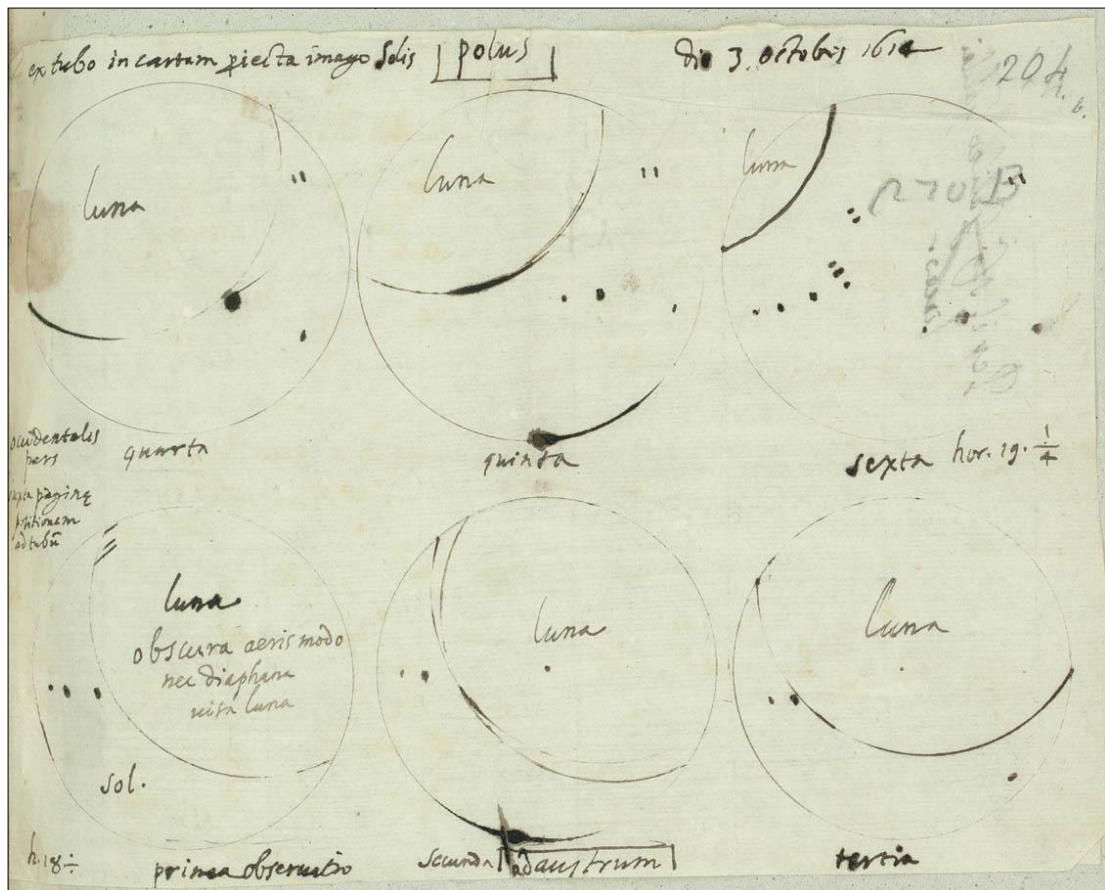 ex tubo in cartam piecta imago Solis polus die 3 octobris 1614
204
b.
luna
luna
luna
occidentalis
pars
iuxta paginę
positionem
ad tubũ
quarta
quinta
sexta hor. 19. 1/4
luna
obscura aeris modo
nec diaphana
uisa luna
sol.
luna
luna
h. 18 ÷
prima obseruatio
secunda
ad austrum
tertia